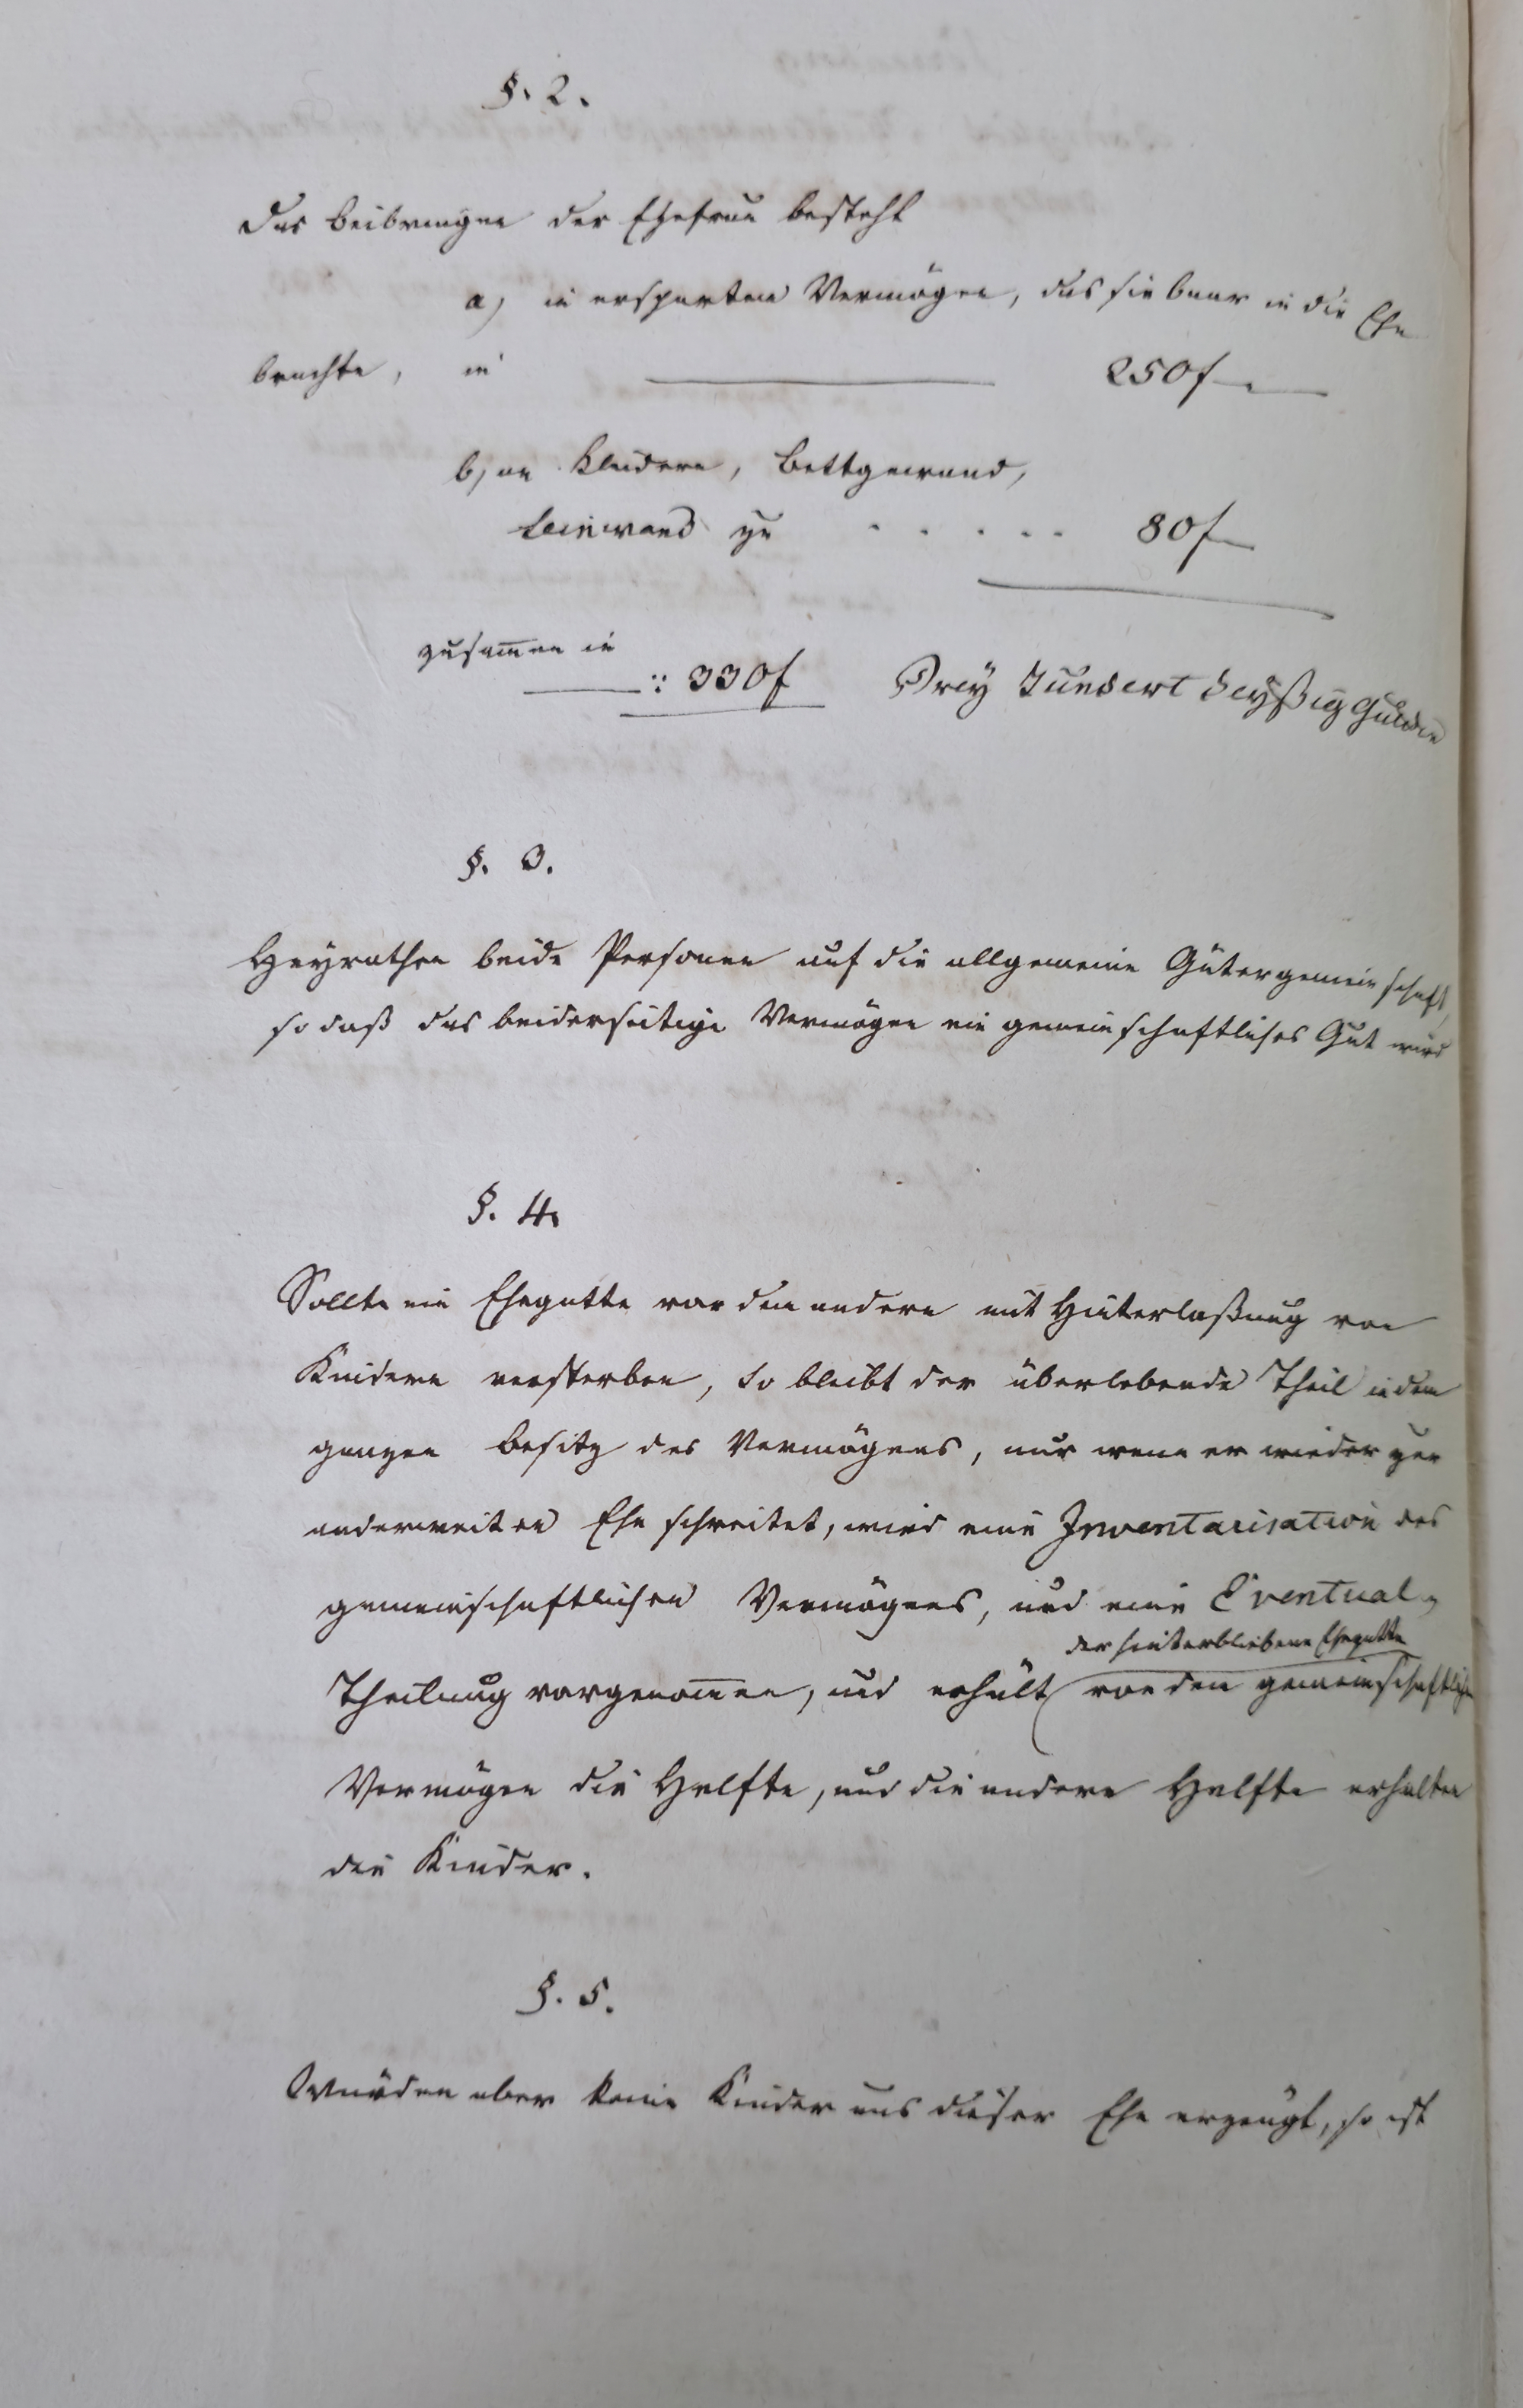 §. 2.
Das Beibringen der Ehefrau besteht
a) in ersparten Vermögen, das sie baar in die Ehe
brachte, in 250f
b) an Kleidern, Bettgewand,
Leinwand zu . . . . . 80f
zusam̅en in
:: 330f Drey Hundert Dreyßig Gulden
§. 3.
Heyrathen beide Personen auf die allgemeine Gütergemeinschaft,
so daß das beiderseitige Vermögen ein gemeinschaftliches Gut wird
§. 4.
Sollte ein Ehegatte vor dem andern mit Hinterlaßung von
Kindern versterben, so bleibt der überlebende Theil in dem
ganzen Besitz des Vermögens, nur wenn er wieder zur
anderweiten Ehe schreitet, wird eine Inventarisation des
gemeinschaftlichen Vermögens, und eine Eventual-
der hinterbliebene Ehegatte
Theilung vorgenom̅en, und erhält von dem gemeinschaftlichen
Vermögen die Helfte, und die andere Helfte erhalten
die Kinder.
§. 5.
Würden aber keine Kinder aus dieser Ehe erzeugt, so ist